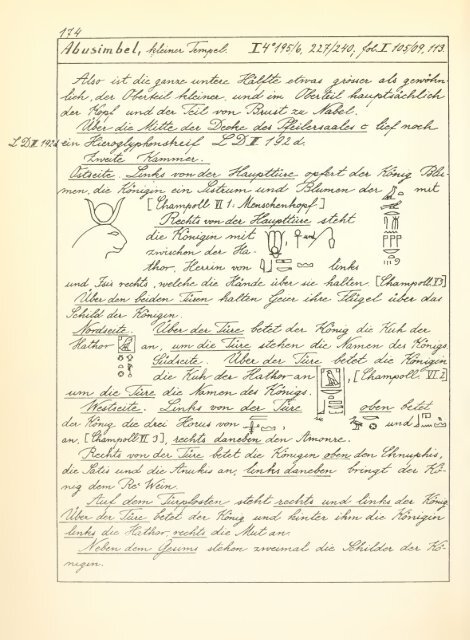 174
Abusimbel, kleiner Tempel. I 4° 195/6, 227/240, fol. I 105/09, 113.
Also ist die ganze untere Hälfte etwas grösser als gewöhn-
lich, der Oberteil kleiner, und im Oberteil hauptsächlich
der Kopf und der Teil von Brust zu Nabel.
Über die Mitte der Decke des Pfeilersaales c lief noch
L D III 192d ein Hieroglyphenstreif L D III 192 d.
Zweite Kammer.
Ostseite. Links von der Haupttüre opfert der König Blu-
men, die Königin ein Sistrum und Blumen der mit
[Champoll VI 1: Menschenkopf.]
Rechts von der Haupttüre steht
die Königin mit
zwischen der Ha-
thor, Herrin von links
und Isis rechts, welche die Hände über sie halten.
Über den beiden Türen halten Geier ihre Flügel über das
Schild der Königin.
Nordseite. Über der Türe betet der König die Kuh der
Hathor an, um die Türe stehen die Namen des Königs.
Südseite. Über der Türe betet die Königin
die Kuh der Hathor an , [Champoll. VI 2]
um die Türe die Namen des Königs.
Westseite. Links von der Türe oben betet
der König die drei Horus von und
an, [Champoll VI 3], rechts daneben den Amonre.
Rechts von der Türe betet die Königin oben den Chnuphis,
die Satis und die Anukis an, links daneben bringt der Kö-
nig dem Re Wein.
Auf dem Türpfosten steht rechts und links der König
Über der Türe betet der König und hinter ihm die Königin
links die Hathor, rechts die Mut an.
Neben dem Gesims stehen zweimal die Schilder der Kö-
nigin.